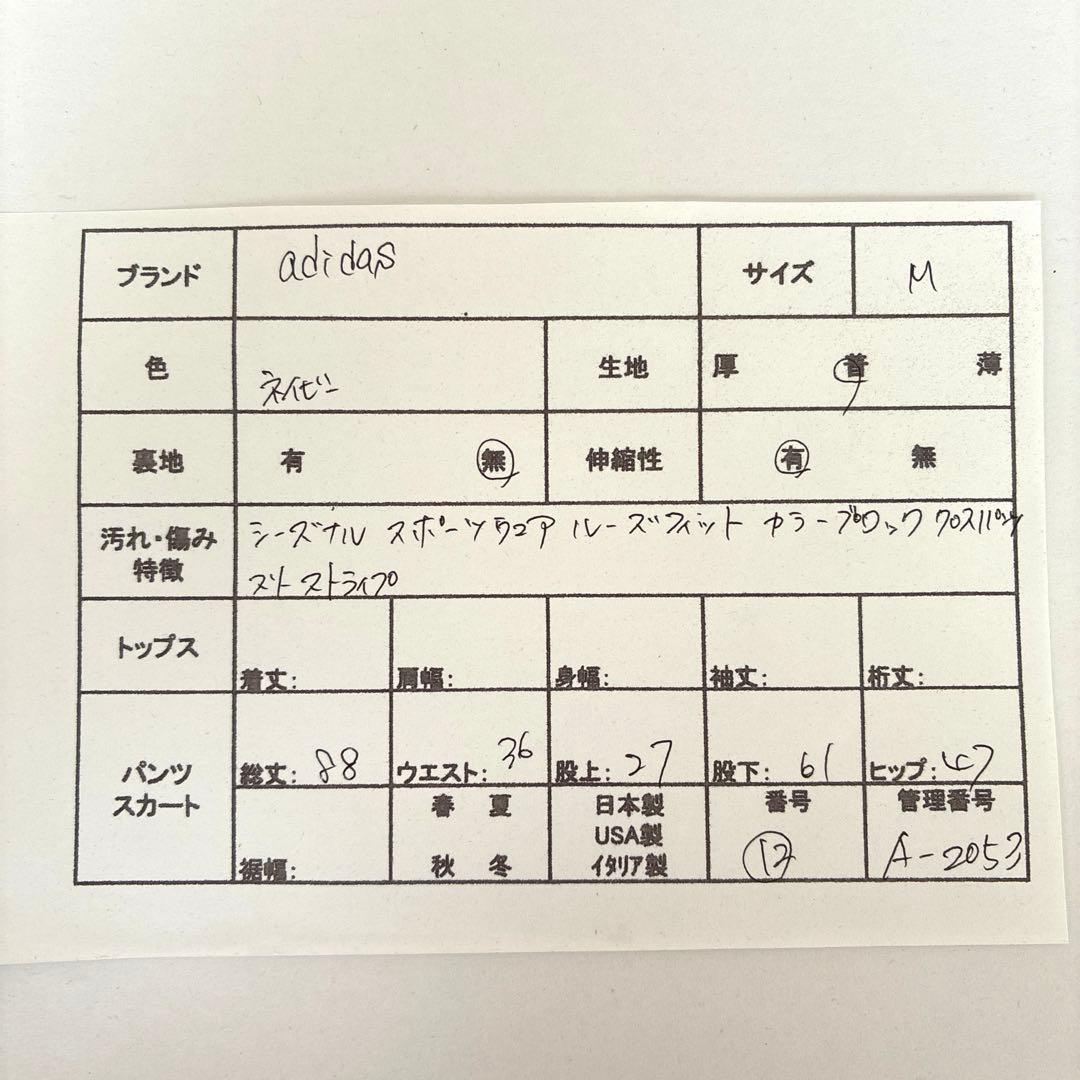 ブランド adidas サイズ M
色 ネイビー 生地 厚 普 薄
裏地 有 無 伸縮性 有 無
汚れ・傷み シーズナル スポーツウェア ルーズフィット カラーブロック クロスパンツ
特徴 スリーストライプ
トップス 着丈: 肩幅: 身幅: 袖丈: 裄丈:
パンツ 総丈: 88 ウエスト: 36 股上: 27 股下: 61 ヒップ: 47
スカート 春 夏 日本製 番号 管理番号
USA製
裾幅: 秋 冬 イタリア製 12 A-2053